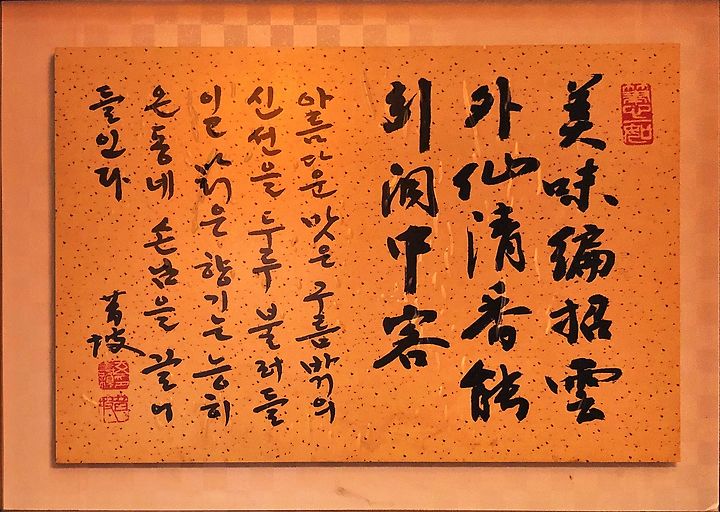 美味編招雲
外仙清香能
洞中客
아름다운 맛은 구름밖의
신선을 두루 불러들
맑은 향기는 능히
온동네 손님을 끌어
들인다